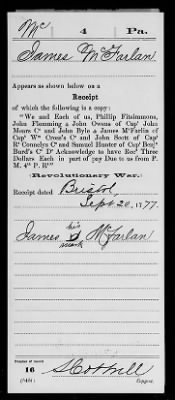 Mc 4 Pa.
James McFarlan
Appears as shown below on a
Receipt
of which the following is a copy:
"We and Each of us, Phillip Fitzimmons,
John Flemming & John Owens of Capt John
Mears Co and John Byle & James McFarlin of
Capt Wm Cross's Co and John Scott of Capt
Rt Connelys Co and Samuel Hunter of Capt Benjn
Burd's Co Do Acknowledge to have Recd Three
Dollars Each in part of pay Due to us from P.
M. 4th P. Rt"
(Revolutionary War.)
Receipt dated Bristol,
Sept 20, 1777.
James his McFarlan
mark
Number of record:
16
Copyist.